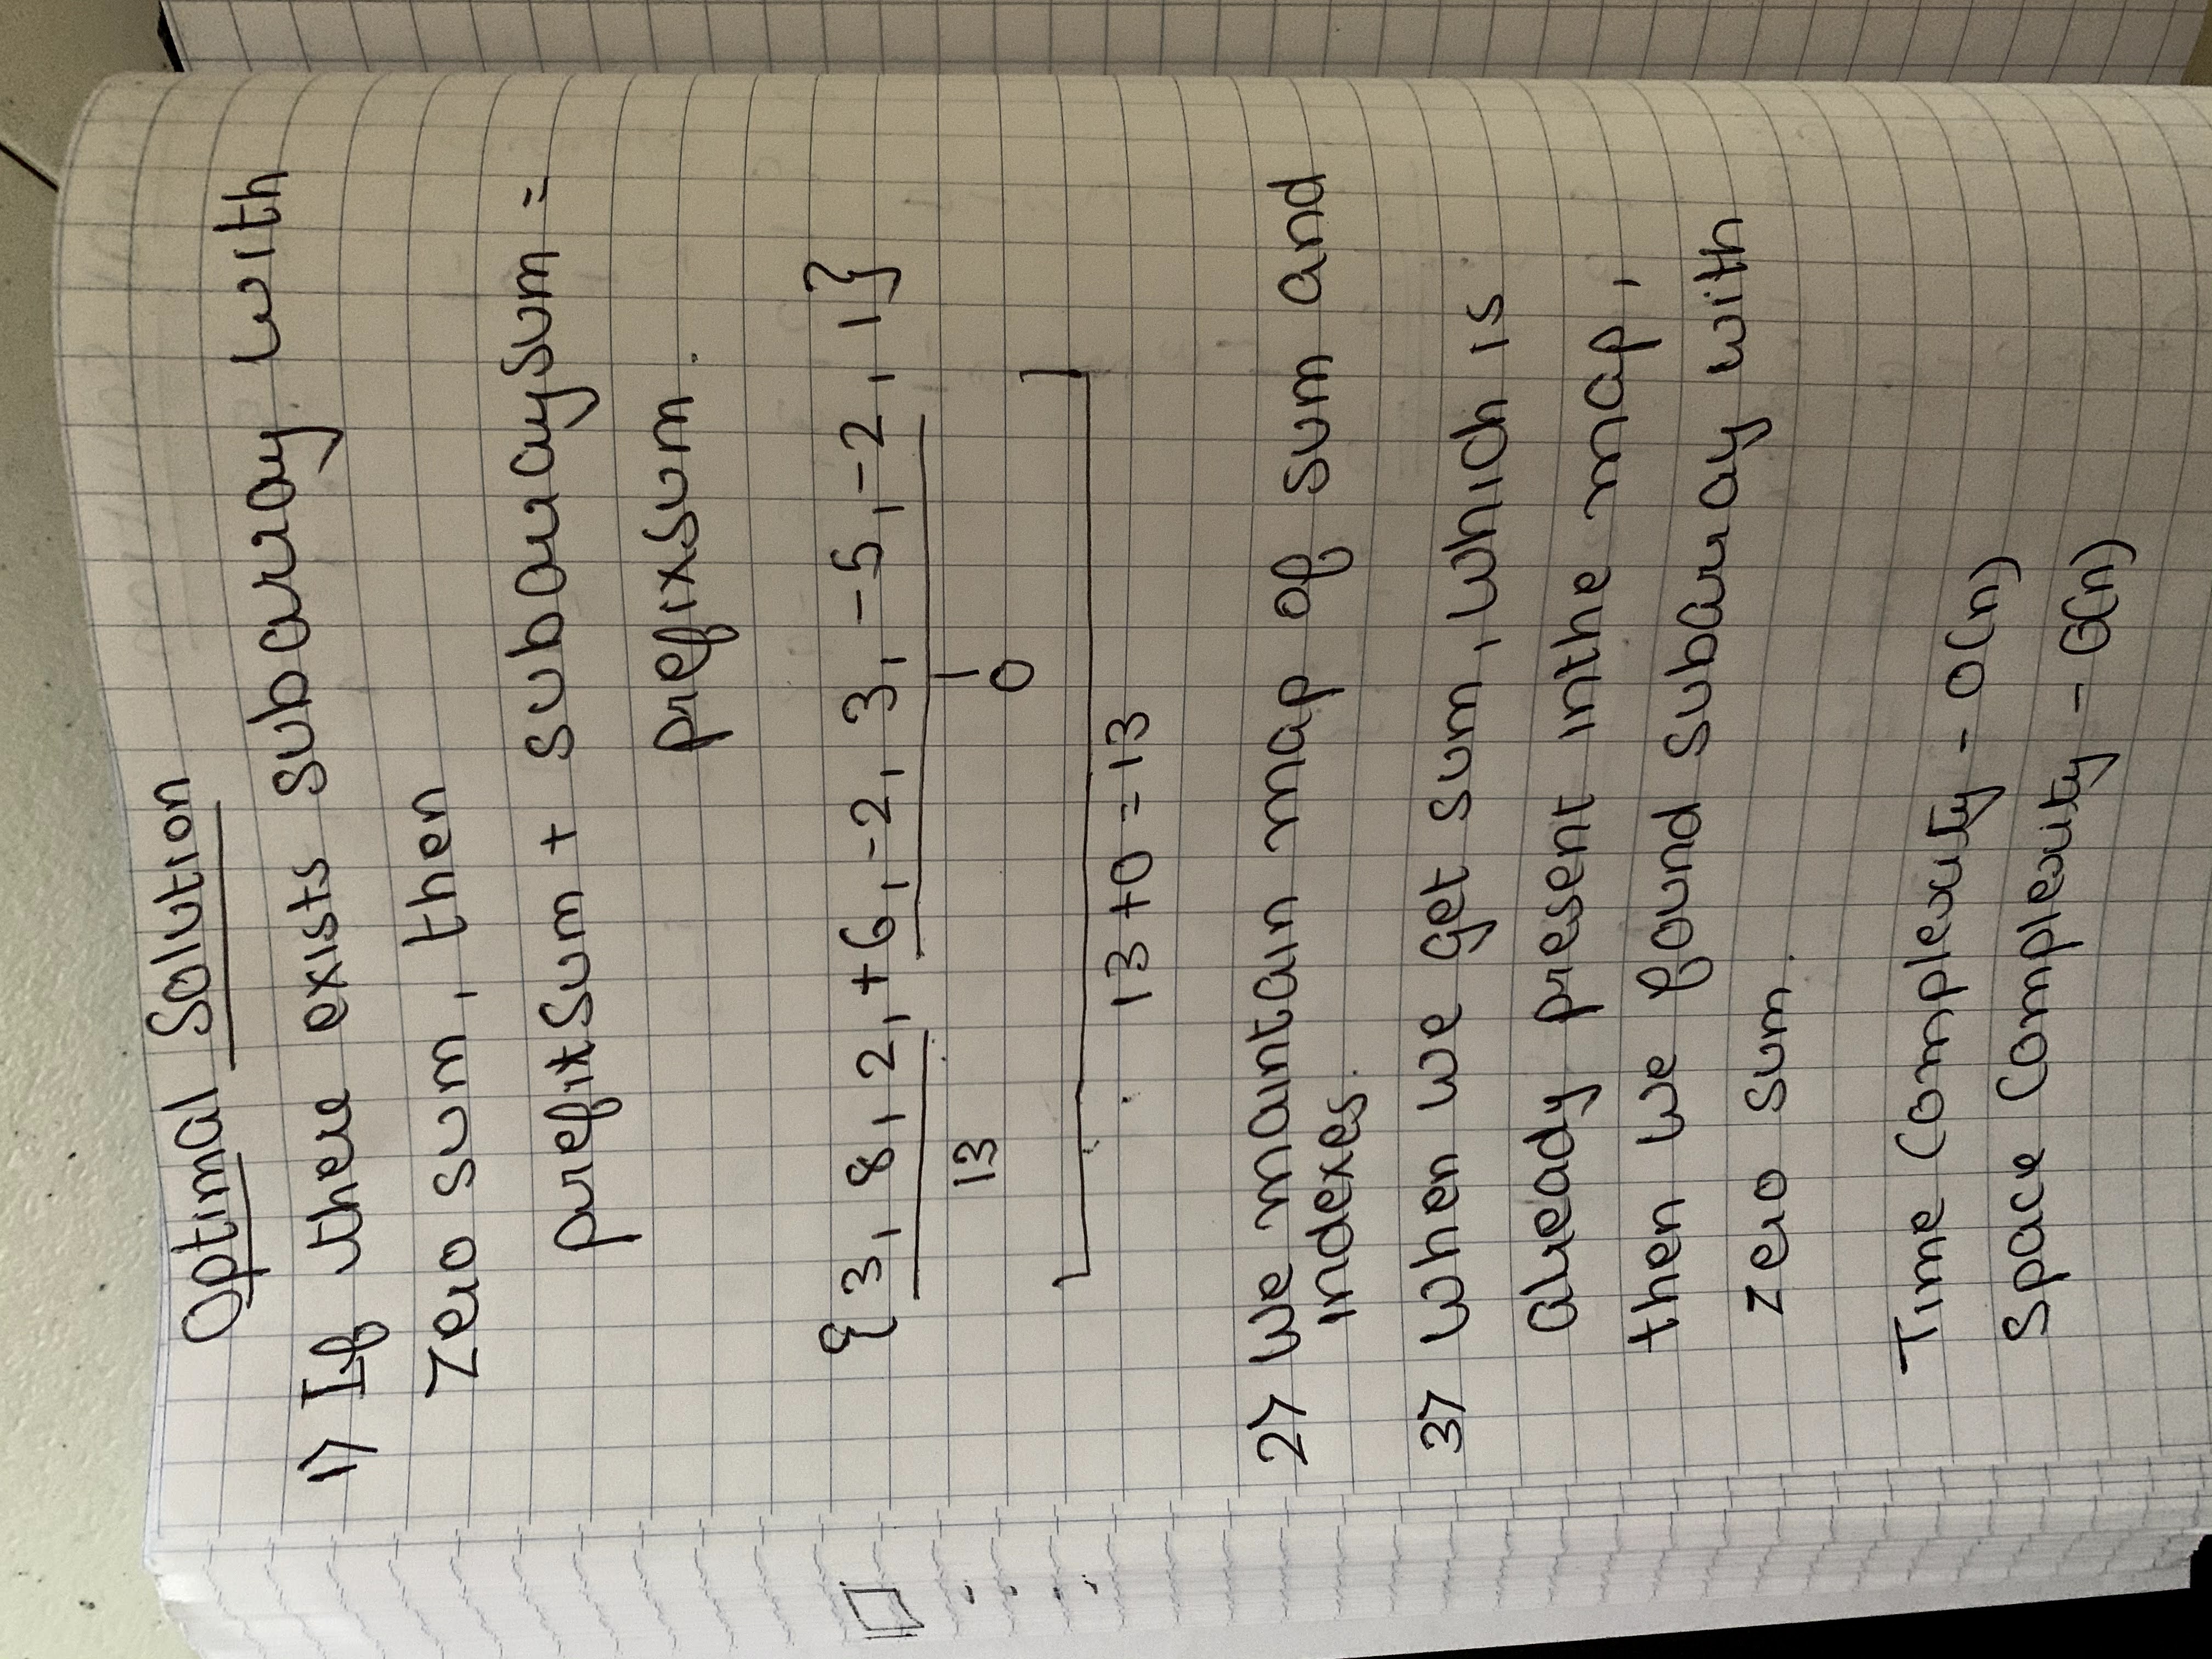 Optimal Solution
1) If there exists subarray with
zero sum, then
prefixSum + subarraySum =
prefixSum.
{3, 8, 2, +6, -2, 3, -5, -2, 1}
13
0
13 + 0 = 13
2) We maintain map of sum and
indexes.
3) When we get sum, which is
already present in the map,
then we found subarray with
zero sum.
Time Complexity - O(n)
Space Complexity - O(n)